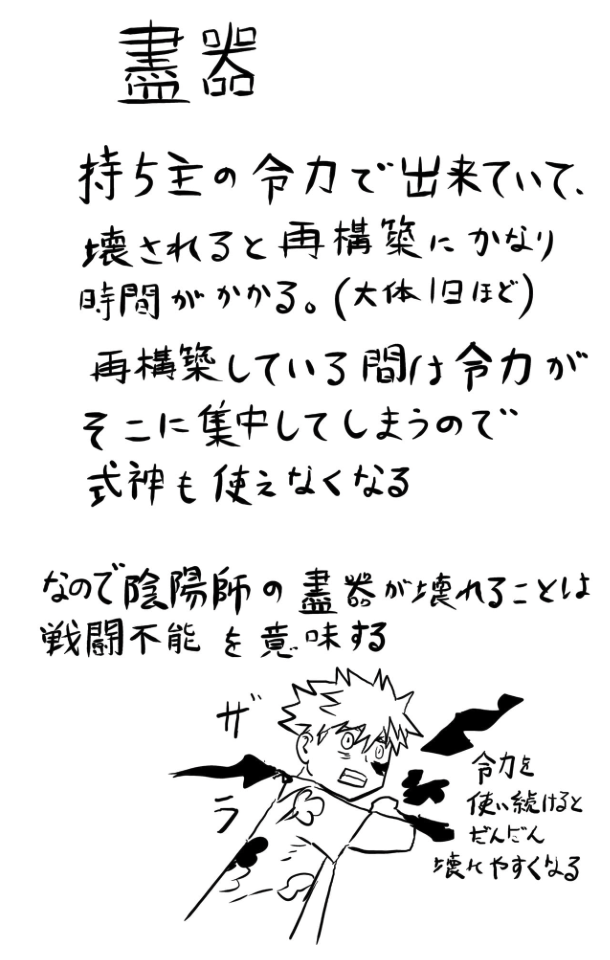 盡器
持ち主の令力で出来ていて、
壊されると再構築にかなり
時間がかかる。(大体1日ほど)
再構築している間は令力が
そこに集中してしまうので
式神も使えなくなる
なので陰陽師の盡器が壊れることは
戦闘不能を意味する
ザ
ラ
令力を
使い続けると
だんだん
壊れやすくなる